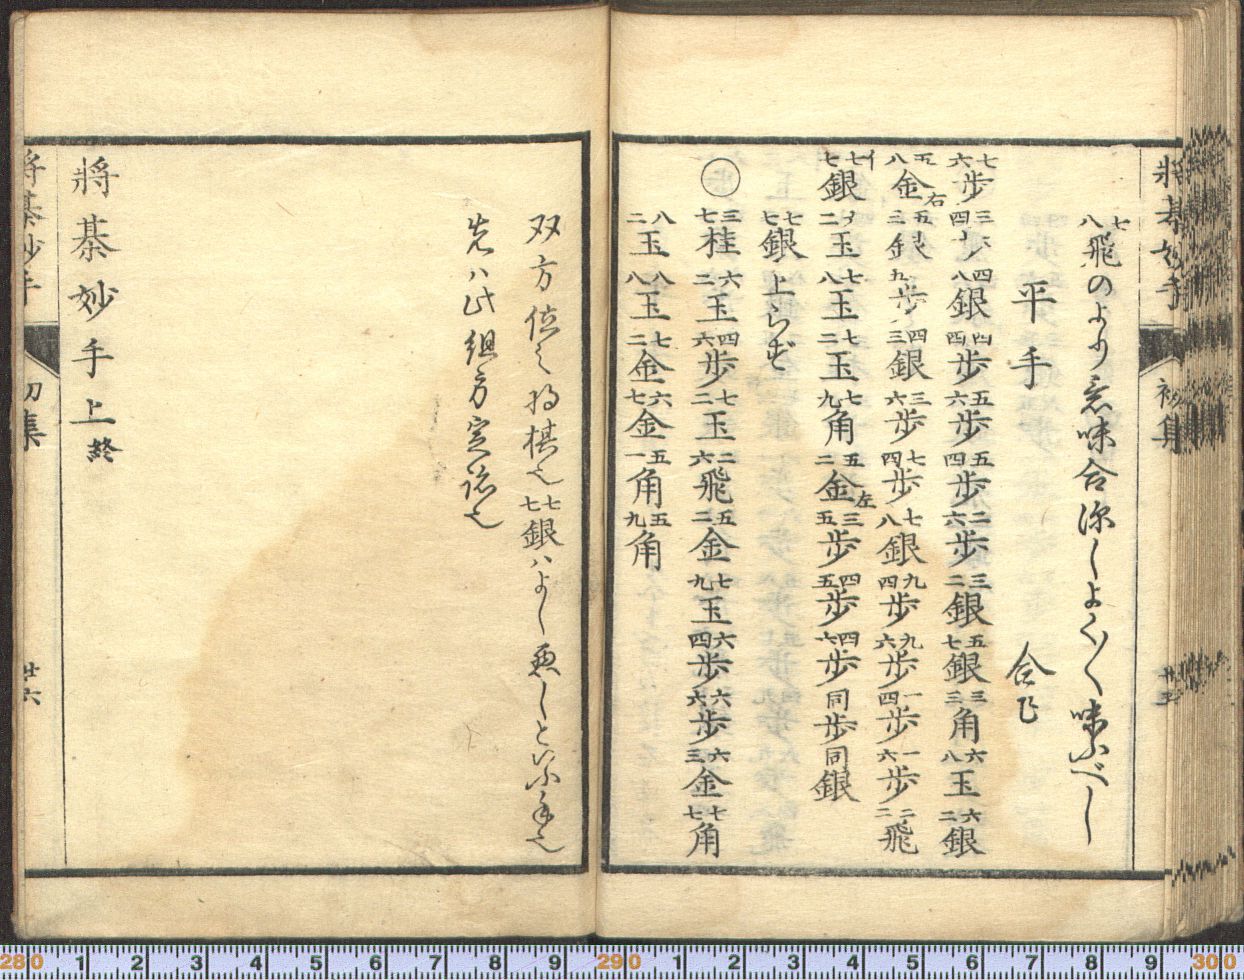 將棊妙手
初集
七八飛のより意味合深しよく〱味ふべし
平手
七六歩 三四歩 四八銀 四四歩 五六歩 五四歩 二六歩 三二銀 五七銀 三三角 六八玉 六二銀
五八金右 五三銀 九歩 四三銀 三六歩 七四歩 七八銀 九四歩 九六歩 一四歩 一六歩 二二飛
七七銀イ 二玉 七八玉 七二玉 七九角 五二金左 三五歩 四五歩 四六歩 同歩 同銀
七七銀上らず
〇 三七桂 六二玉 四六歩 七二玉 二六飛 五二金 七九玉 六四歩 六六歩 六三金 七七角
八二玉 八八玉 七二金 六七金 五一角 五九角
双方位之
七七銀ハよし悪しと
先ハ此組方定
將棊妙手上終
將棊妙手
初集
廿六
280 1 2 3 4 5 6 7 8 9 290 1 2 3 4 5 6 7 8 9 300